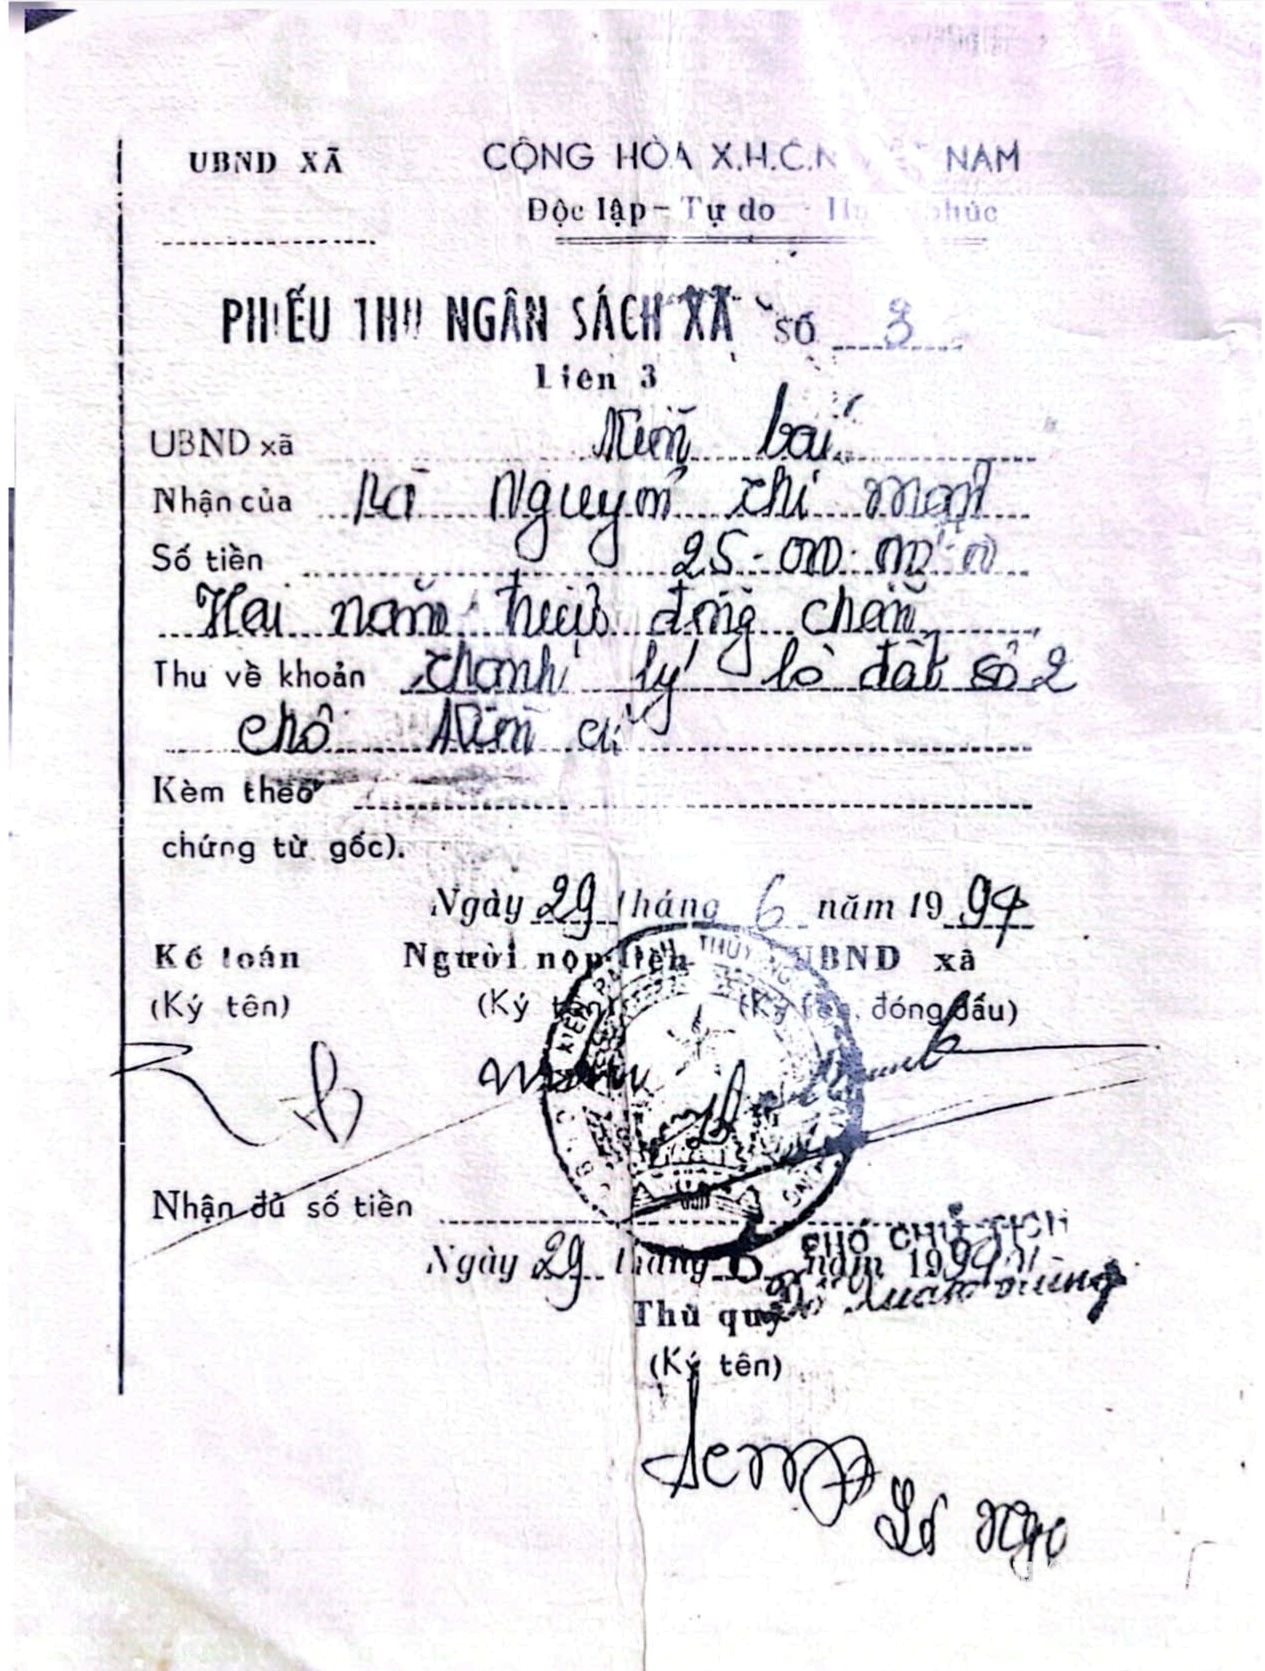 UBND XÃ
CỘNG HÒA X.H.C.N VIỆT NAM
Độc lập - Tự do - Hạnh phúc
PHIẾU THU NGÂN SÁCH XÃ SỐ 3
Liên 3
UBND xã
Nhận của Bà Nguyễn thi
Số tiền 25.000.000
Hai năm triệu đồng chẵn
Thu về khoản thanh lý lô đất số 2
chô
Kèm theo
chứng từ gốc).
Ngày 29 tháng 6 năm 1997
Kế toán Người nộp tiền UBND xã
(Ký tên) (Ký tên) (Ký tên, đóng dấu)
Nhận đủ số tiền
PHÓ CHỦ TỊCH
Ngày 29 tháng 6 năm 199
Xuân
Thủ quỹ
(Ký tên)